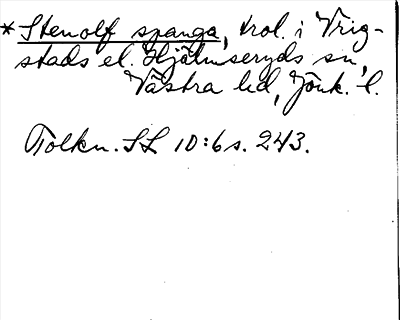 * Stenolf spanga, trol. i Vrig-
stads el. Hjälmseryds sn,
Västra hd, Jönk. l.
Tolkn. SL 10:6 s. 243.